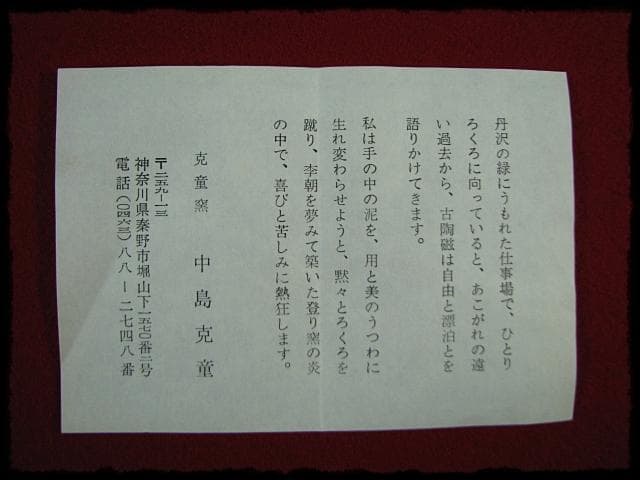 丹沢の緑にうもれた仕事場で、ひとり
ろくろに向っていると、あこがれの遠
い過去から、古陶磁は自由と漂泊とを
語りかけてきます。
私は手の中の泥を、用と美のうつわに
生れ変わらせようと、黙々とろくろを
蹴り、李朝を夢みて築いた登り窯の炎
の中で、喜びと苦しみに熱狂します。
克童窯　中島克童
〒二五九－一三
神奈川県秦野市堀山下一五七〇番二号
電話（〇四六三）八八－二七四八番